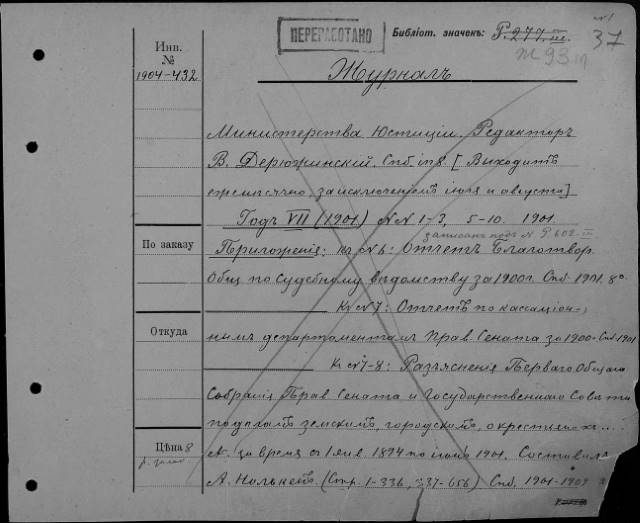 ПЕРЕРАБОТАНО
Библіот. значекъ: P.277.III.
ж 93 37
Инв.
№
1904-432
Журналъ
Министерства Юстиціи. Редакторъ
В. Дерюжинскій. Спб in 8. [Выходитъ
ежемѣсячно, за исключеніемъ іюля и августа]
Годъ VII (1901) №№ 1-3, 5-10. 1901.
записанъ подъ № P 602. III
По заказу
Приложенія: Къ № 6: Отчетъ Благотвор.
Общ. по Судебному вѣдомству за 1900 г. Спб. 1901. 8°
Къ № 7: Отчетъ по кассаціон-
Откуда
нымъ департаментамъ Прав. Сената за 1900. Спб. 1901
Къ № 7-8: Разъясненія Перваго Общаго
Собранія Прав. Сената и Государственнаго Совѣта
по дѣламъ земскимъ, городскимъ, о крестьянахъ...
Цѣна 8
за время съ 1 янв. 1894 по 1901. Составилъ
А. (Стр. 1-336, 337-656) Спб. 1901-1902